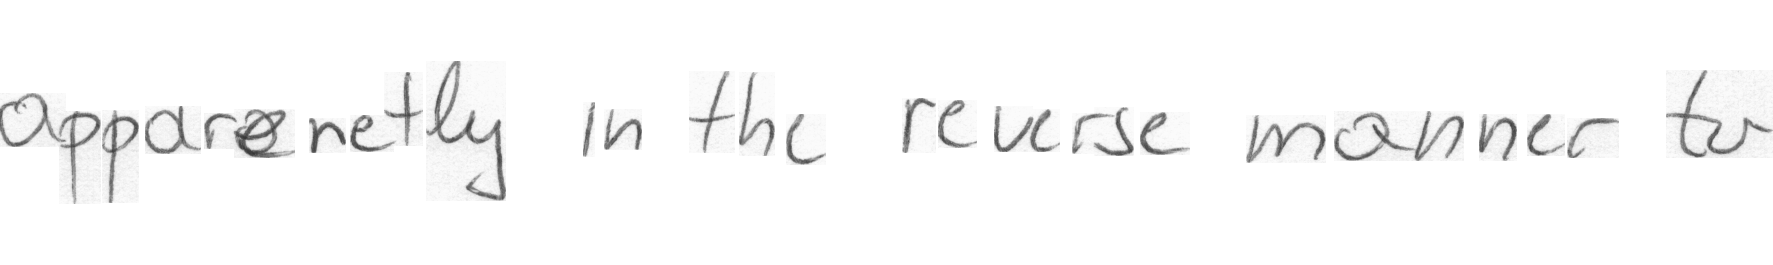 apparenetly in the reverse manner to